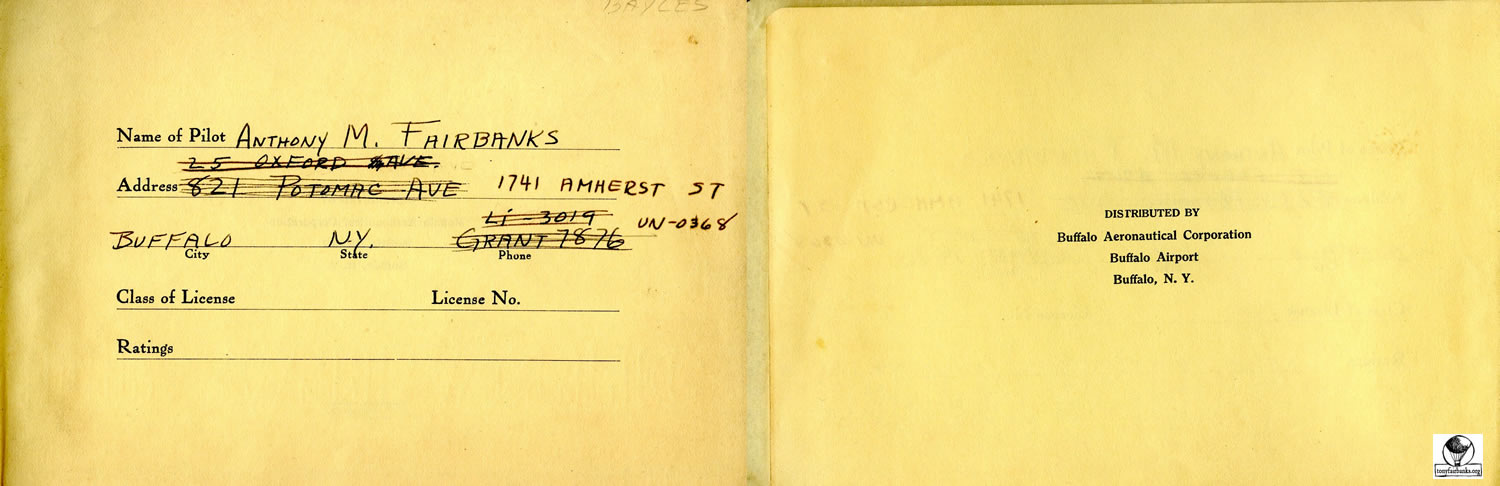 BAYLES
Name of Pilot ANTHONY M. FAIRBANKS
25 OXFORD AVE.
Address 821 POTOMAC AVE 1741 AMHERST ST
Li-3019 UN-0368
BUFFALO N.Y. GRANT 7876
City State Phone
Class of License License No.
Ratings
DISTRIBUTED BY
Buffalo Aeronautical Corporation
Buffalo Airport
Buffalo, N. Y.
tonyfairbanks.org